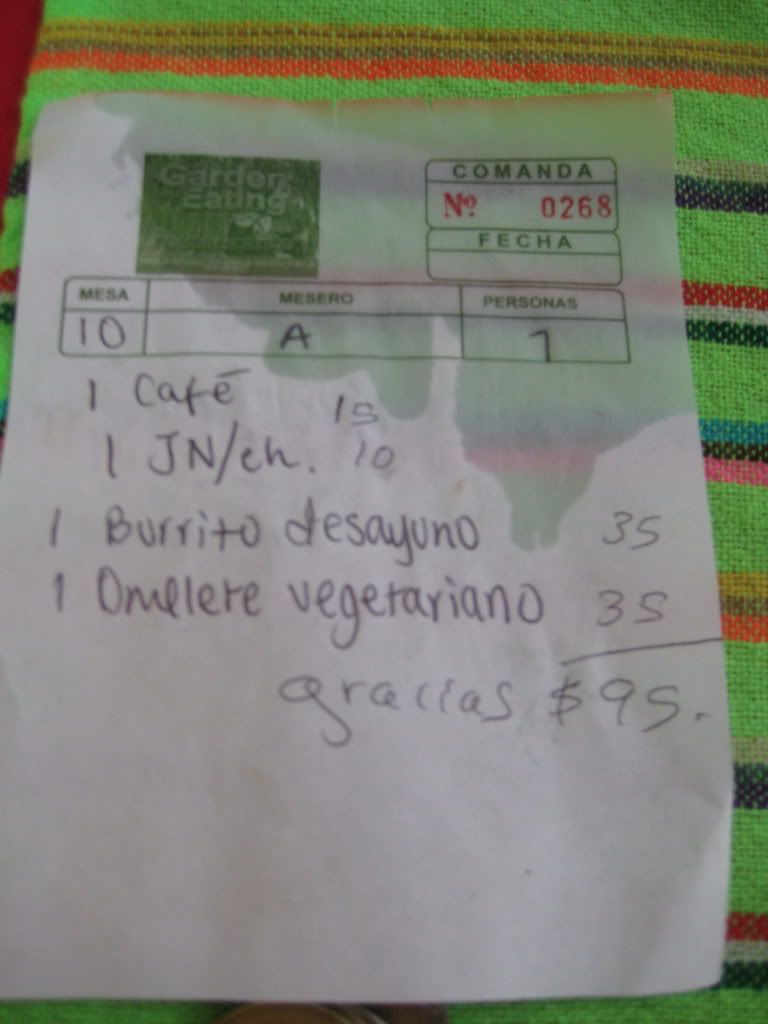 Garden
Eating
COMANDA
Nº 0268
FECHA
MESA MESERO PERSONAS
10 A 1
1 Café 15
1 JN/ch. 10
1 Burrito desayuno 35
1 Omellete vegetariano 35
gracias $95.